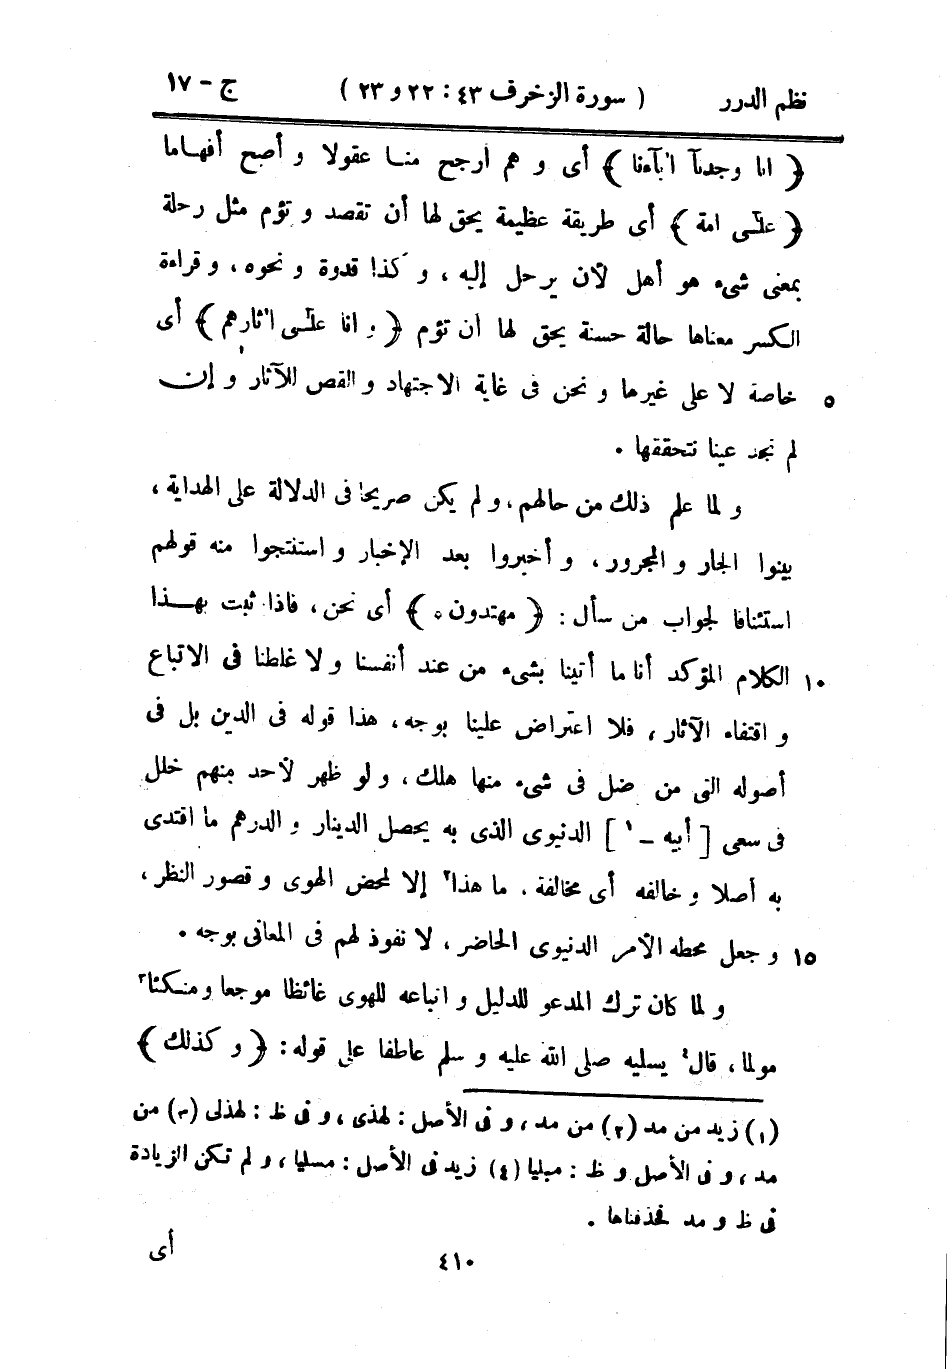 نظم الدرر ( سورة الزخرف ٤٣ : ٢٢ و ٢٣ ) ج - ١٧
﴿ انا وجدنآ اٰبآءنا ﴾ أى و هم أرجح منا عقولا و أصبح أفهاما
﴿ علىٓ امة ﴾ أى طريقة عظيمة يحق لها أن تقصد و تؤم مثل رحلة
بمعنى شىء هو أهل لأن يرحل إليه ، و كذا قدوة و نحوه ، و قراءة
الكسر معناها حالة حسنة يحق لها أن تؤم ﴿ و انا علىٓ اٰثارهم ﴾ أى
٥ خاصة لا على غيرها و نحن فى غاية الاجتهاد و القص للآثار و إن
لم نجد عينا نتحققها .
و لما علم ذلك من حالهم ، و لم يكن صريحا فى الدلالة على الهداية ،
بينوا الجار و المجرور ، و أخبروا بعد الإخبار و استنتجوا منه قولهم
استئنافا لجواب من سأل : ﴿ مهتدون ه ﴾ أى نحن ، فاذا ثبت بهذا
١٠ الكلام المؤكد أنا ما أتينا بشىء من عند أنفسنا و لا غلطنا فى الاتباع
و اقتفاء الآثار ، فلا اعتراض علينا بوجه ، هذا قوله فى الدين بل فى
أصوله التى من ضل فى شىء منها هلك ، و لو ظهر لأحد منهم خلل
فى سعى [ أبيه - ١ ] الدنيوى الذى به يحصل الدينار و الدرهم ما اقتدى
به أصلا و خالفه أى مخالفة . ما هذا٢ إلا لمحض الهوى و قصور النظر ،
١٥ و جعل محطه الأمر الدنيوى الحاضر ، لا نفوذ لهم فى المعانى بوجه .
و لما كان ترك المدعو للدليل و اتباعه للهوى غائظا موجعا و منكئا٣
مولما ، قال٤ يسليه صلى الله عليه و سلم عاطفا على قوله : ﴿ و كذلك ﴾
(١) زيد من مد (٢) من مد ، و فى الأصل : لهذى ، و فى ظ : لهذلى (٣) من
مد ، و فى الأصل و ظ : مبليا (٤) زيد فى الأصل : مسليا ، و لم تكن الزيادة
فى ظ و مد فحذفناها .
٤١٠ أى